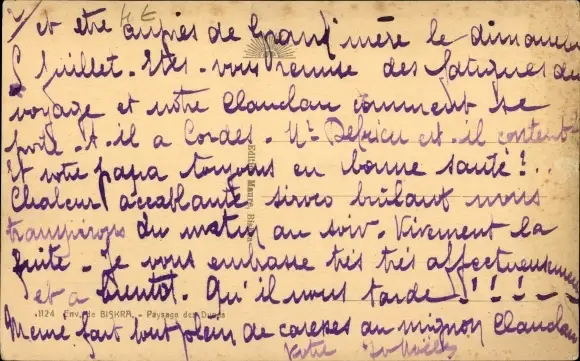 2/
et être auprès de Grand'mère le dimanche
5 Juillet. Etes-vous remise des fatigues du
voyage et notre Claudan comment se
porte-t-il a Cordes. Mr est-il content
Et votre papa toujours en bonne santé!..
Chaleur accablante siroco brûlant nous
transpirons du matin au soir. Vivement la
fuite. Je vous embrasse très très affectueusement
et a bientôt. Qu'il nous tarde!!!!
Mème fait tout plein de caresses au mignon Claudan
Votre
1124 Env. de BISKRA. - Paysage des Dunes
Edition Maure, Biskra